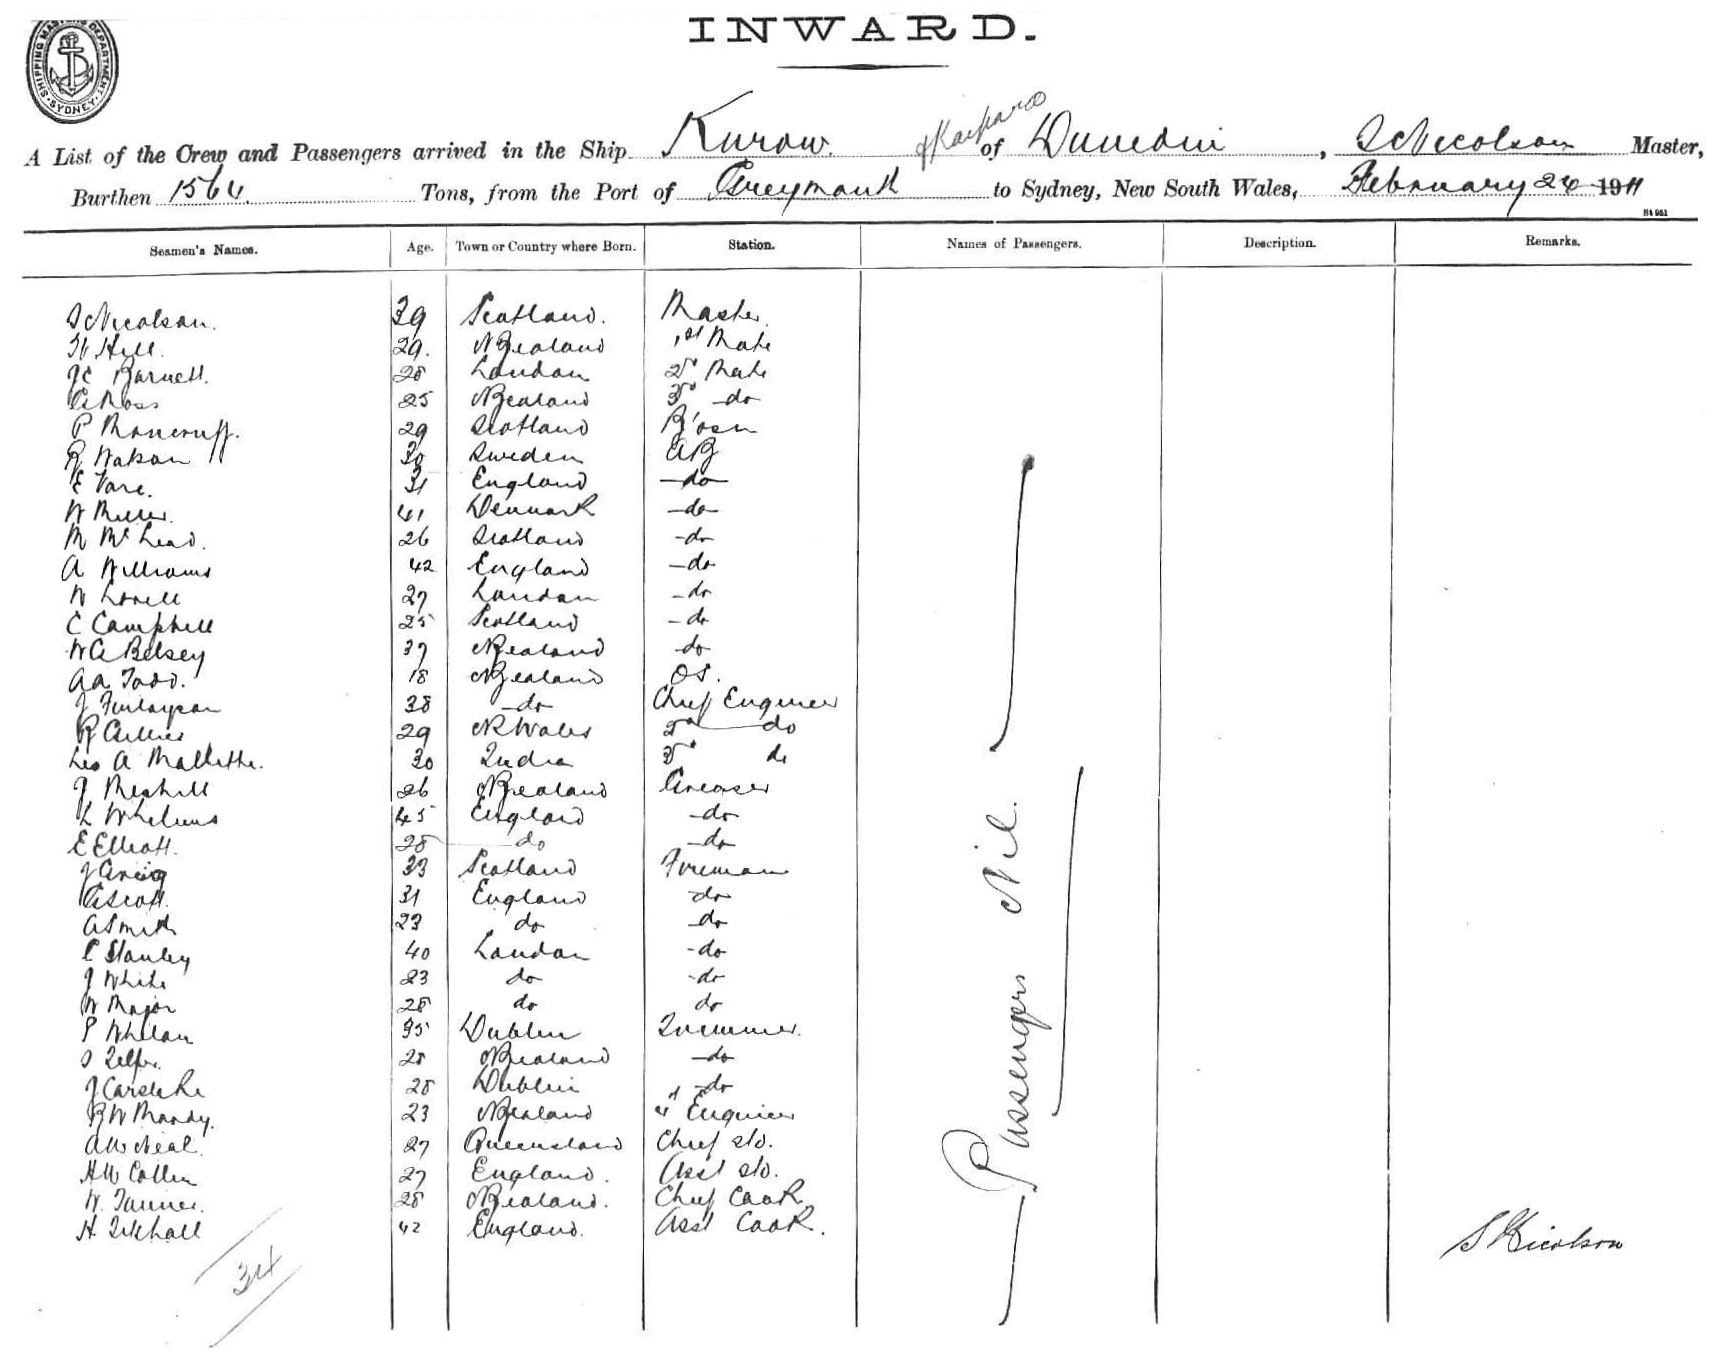 INWARD.
SHIPPING MASTERS DEPARTMENT SYDNEY
A List of the Crew and Passengers arrived in the Ship Kurow. of Dunedin, S Nicolson Master,
Burthen 1564. Tons, from the Port of Greymouth to Sydney, New South Wales, February 24 1911
Seamen's Names. Age. Town or Country where Born. Station. Names of Passengers. Description. Remarks.
S Nicolson. 39 Scotland. Master.
W Hill. 29. N Zealand 1st Mate
Barnett. 28 London 2nd Mate
A Ross 25 N Zealand 3rd do
P Moncruff. 29 Scotland B'osn
R Watson 30 Sweden AB
E Vare. 31 England do
W Miller. 41 Denmark do
M McLeod. 26 Scotland do
A Williams 42 England do
W Lovell 27 London do
C Campbell 25 Scotland do
W A Belsey 37 N Zealand do
A A Todd. 18 N Zealand OS.
J Finlayson 38 do Chief Engineer
R 29 N S Wales 2nd do
Leo A 30 India 3rd do
J 26 N Zealand Greaser
45 England do
E Elliott. 28 do do
J Greig 33 Scotland Fireman
A Scott. 31 England do
A Smith 23 do do
C Stanley 40 London do
J White 23 do do
W Major 28 do do
P Whelan 35 Dublin Trimmer.
28 N Zealand do
J 28 Dublin do
R W Mandy. 23 N Zealand 4th Engineer
A W Neal. 27 Queensland Chief Std.
H W 27 England. Asst Std.
W. Turner. 28 N Zealand. Chief Cook
H. 42 England. Asst Cook.
34
Passengers Nil.
S Nicolson